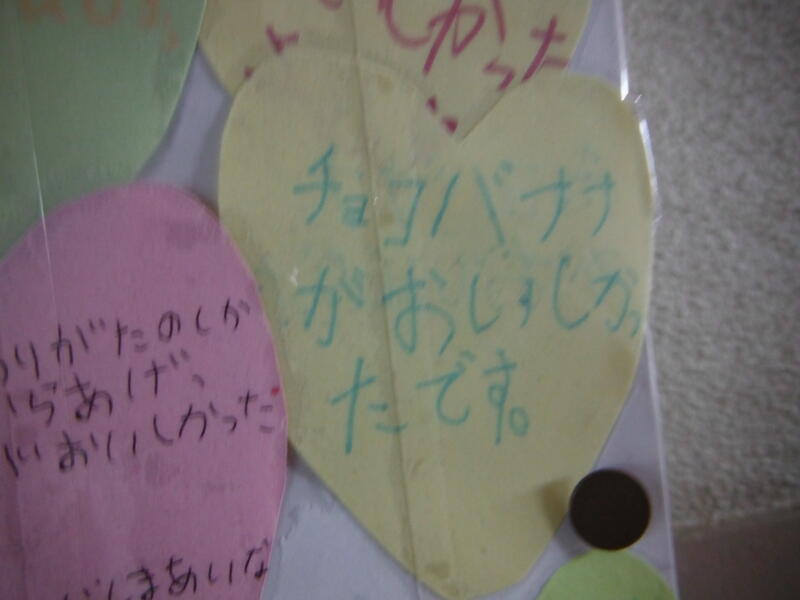 しかった
チョコバナナ
がおいしかっ
たです。
りがたのしか
らあげ、
おいしかった
まあいな